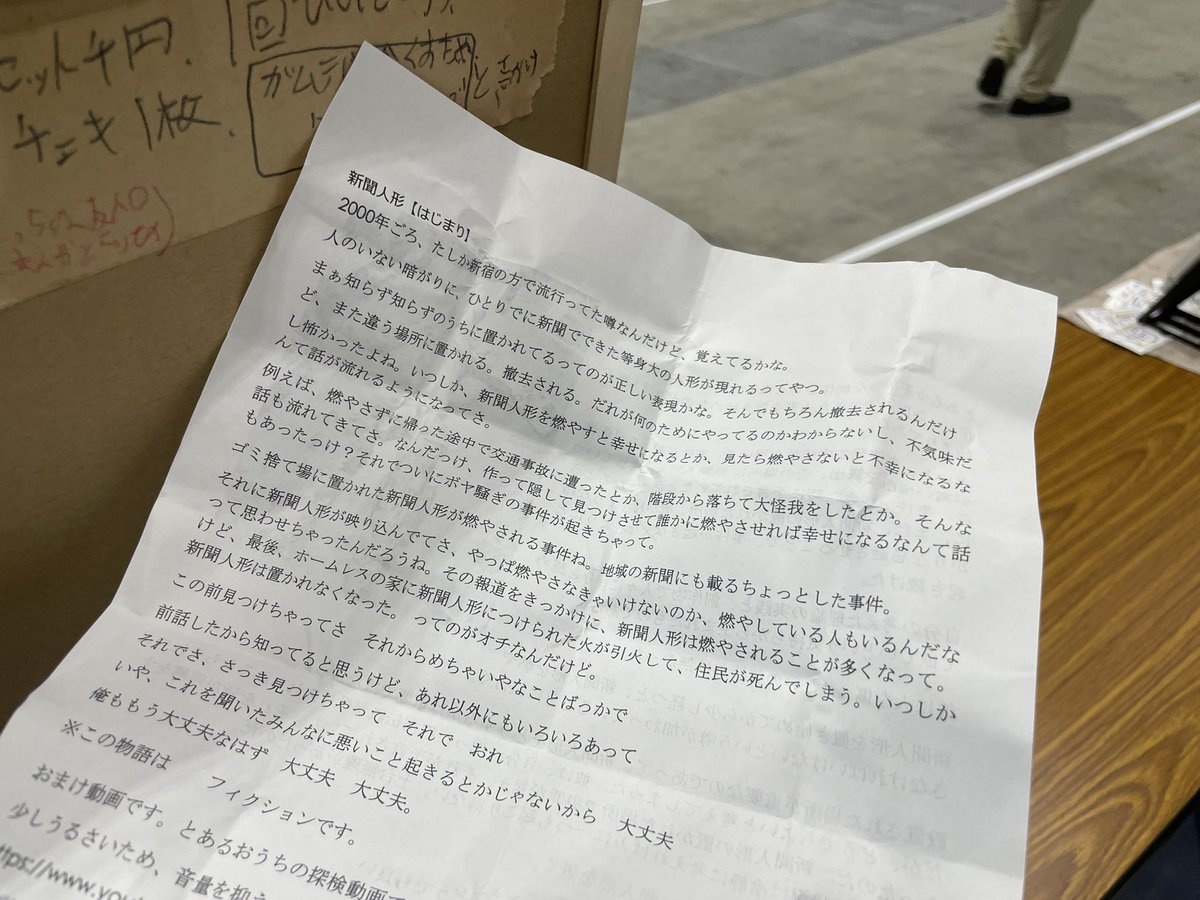 セット千円.
チェキ1枚.
回
新聞人形【はじまり】
2000年ごろ、たしか新宿の方で流行ってた噂なんだけど、覚えてるかな。
人のいない暗がりに、ひとりでに新聞でできた等身大の人形が現れるってやつ。
まぁ知らず知らずのうちに置かれてるってのが正しい表現かな。そんでもちろん撤去されるんだけ
ど、また違う場所に置かれる。撤去される。だれが何のためにやってるのかわからないし、不気味だ
し怖かったよね。いつしか、新聞人形を燃やすと幸せになるとか、見たら燃やさないと不幸になるな
んて話が流れるようになってさ。
例えば、燃やさずに帰った途中で交通事故に遭ったとか、階段から落ちて大怪我をしたとか。そんな
話も流れてきてさ。なんだっけ、作って隠して見つけさせて誰かに燃やさせれば幸せになるなんて話
もあったっけ？それでついにボヤ騒ぎの事件が起きちゃって。
ゴミ捨て場に置かれた新聞人形が燃やされる事件ね。地域の新聞にも載るちょっとした事件。
それに新聞人形が映り込んでてさ、やっぱ燃やさなきゃいけないのか、燃やしている人もいるんだな
って思わせちゃったんだろうね。その報道をきっかけに、新聞人形は燃やされることが多くなって。
けど、最後、ホームレスの家に新聞人形につけられた火が引火して、住民が死んでしまう。いつしか
新聞人形は置かれなくなった。ってのがオチなんだけど。
この前見つけちゃってさ　それからめちゃいやなことばっかで
前話したから知ってると思うけど、あれ以外にもいろいろあって
それでさ、さっき見つけちゃって　それで　おれ
いや、これを聞いたみんなに悪いこと起きるとかじゃないから　大丈夫
俺ももう大丈夫なはず　大丈夫　大丈夫。
※この物語は　フィクションです。
おまけ動画です。とあるおうちの探検動画で
少しうるさいため、音量を抑え
ttps://www.you